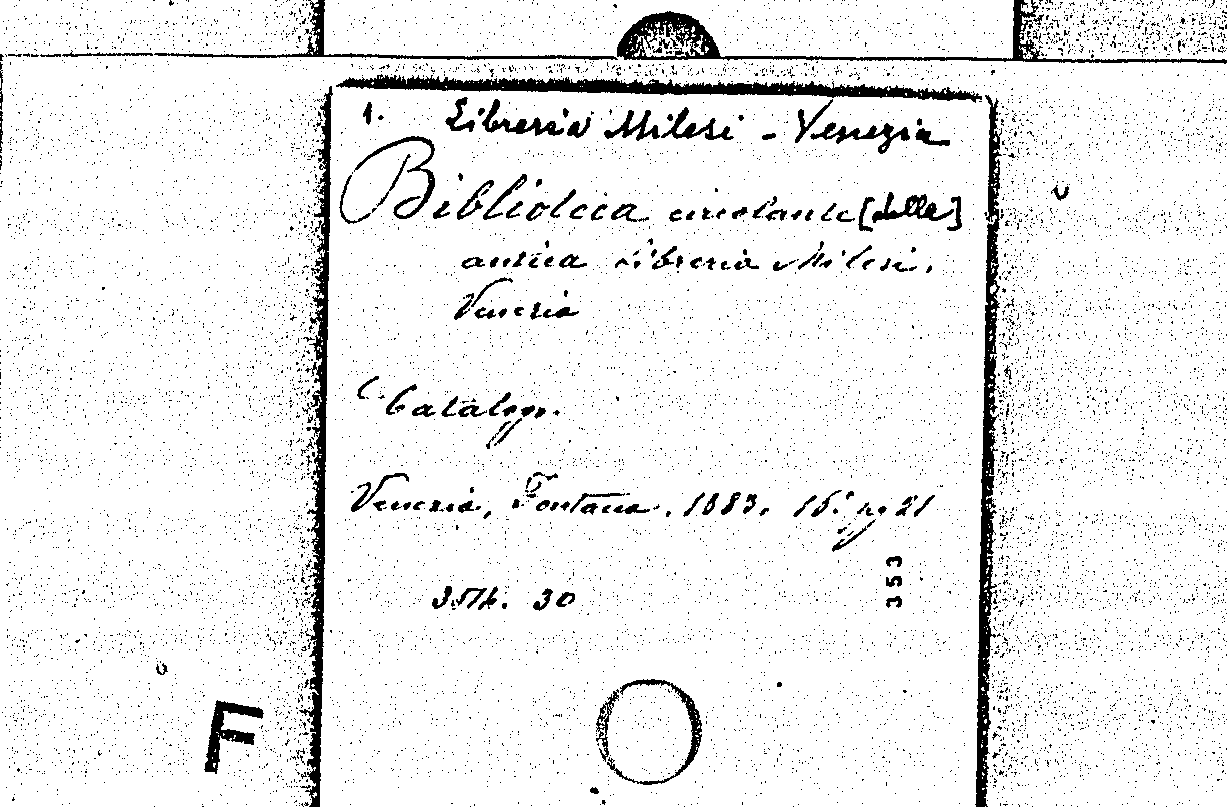 1. Libreria Milesi - Venezia
Biblioteca circolante [della]
antica Libreria Milesi.
Venezia
Catalogo.
Venezia, Fontana. 1883. 16° pg 21
353
3514. 30
F